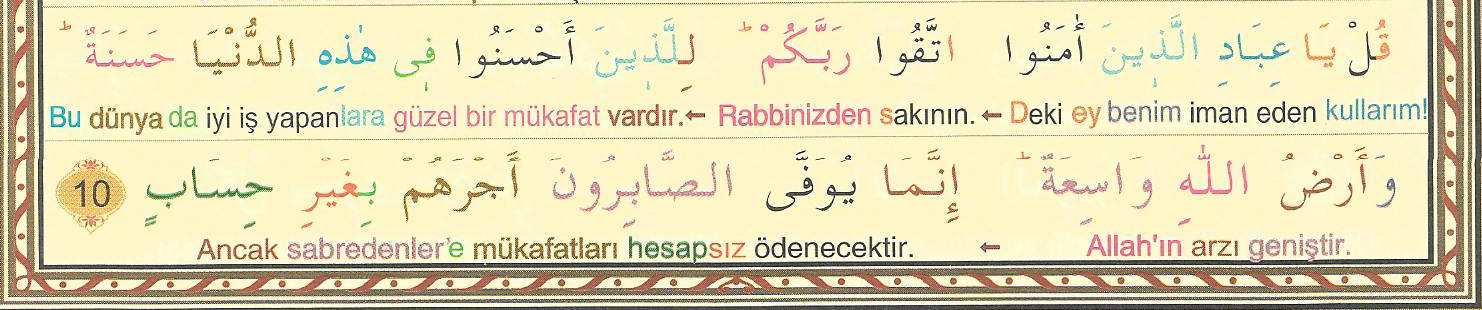 قُلْ يَا عِبَادِ الَّذِينَ أٰمَنُوا اتَّقُوا رَبَّكُمْ ۜ لِلَّذِينَ أَحْسَنُوا فِى هٰذِهِ الدُّنْيَا حَسَنَةٌ
Bu dünyada iyi iş yapanlara güzel bir mükafat vardır.← Rabbinizden sakının. ← Deki ey benim iman eden kullarım!
وَأَرْضُ اللّٰهِ وَاسِعَةٌ إِنَّمَا يُوَفَّى الصَّابِرُونَ أَجْرَهُمْ بِغَيْرِ حِسَابٍ 10
Ancak sabredenler'e mükafatları hesapsız ödenecektir. ← Allah'ın arzı geniştir.